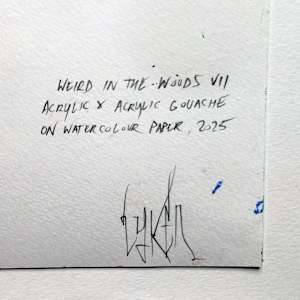 WEIRD IN THE WOODS VII
ACRYLIC & ACRYLIC GOUACHE
ON WATERCOLOUR PAPER, 2025